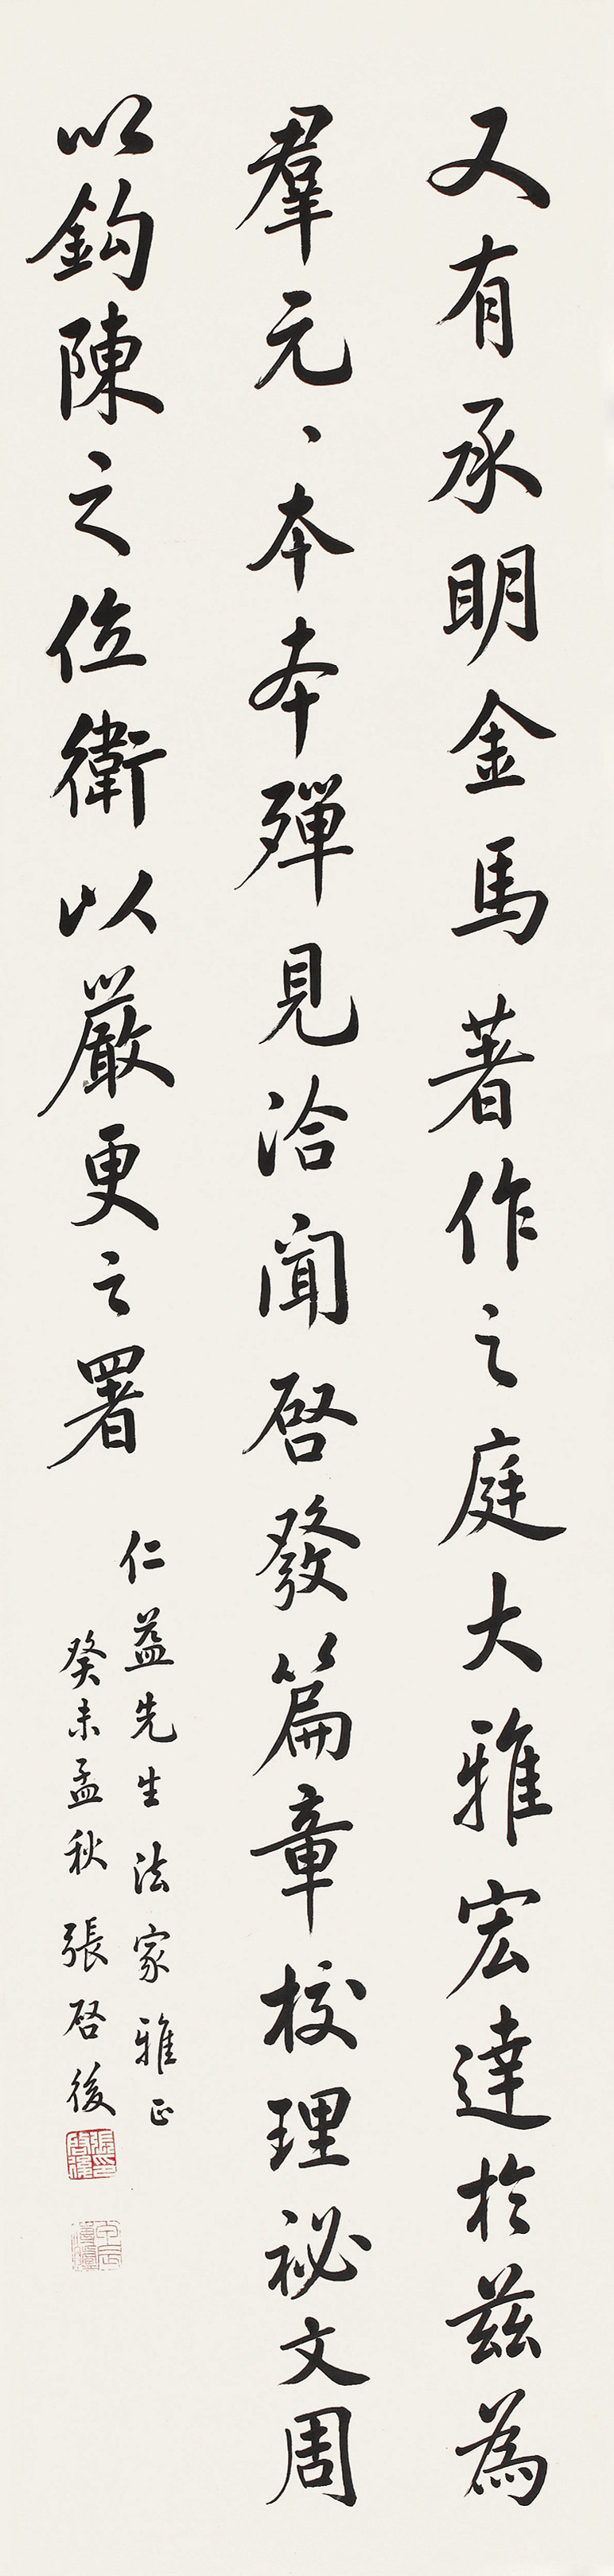 又有承明金馬著作之庭大雅宏達於茲為
羣元、本本殫見洽聞啓發篇章校理祕文周
以鈎陳之位衛以嚴更之署
仁益先生法家雅正
癸未孟秋張啓後